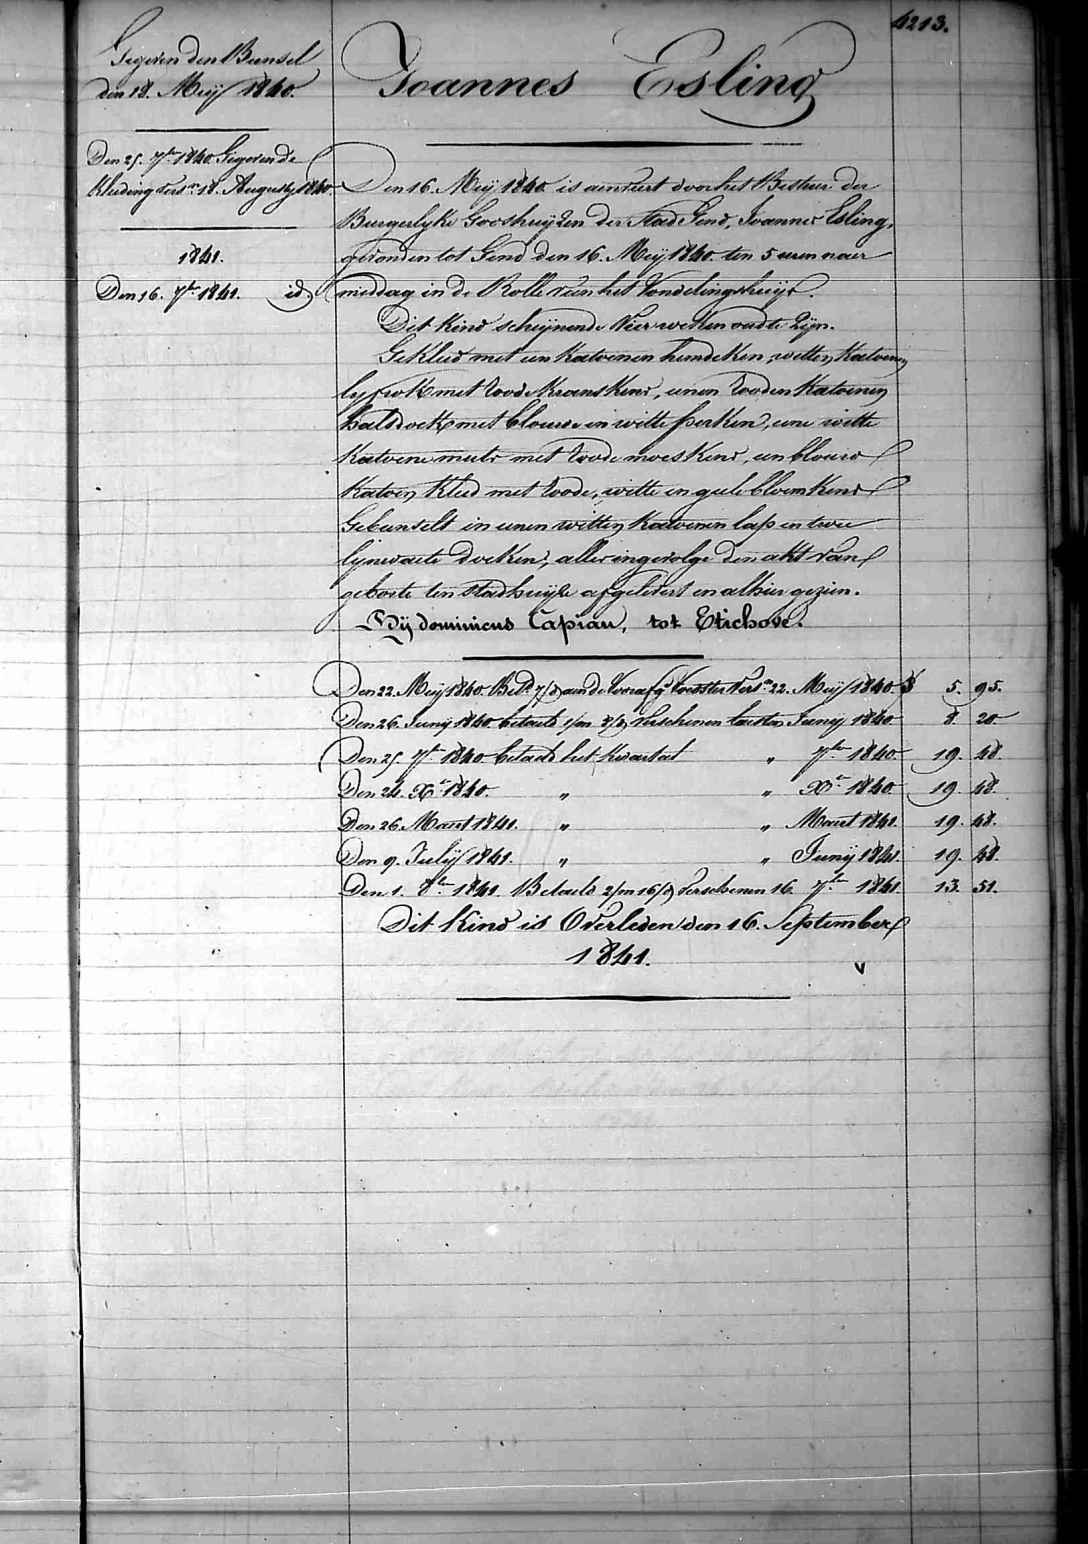 4213.
Gegeven den Bunsel
den 18. Meij 1840.
Den 25. 7br 1840. Gegeven de
Kleeding vers. 18. Augusty 1840.
1841.
Den 16. 7br 1841. id
Joannes Esling
Den 16. Meij 1840 is aenveert door het Bestuer der
Burgerlyke Godshuyzen der Stad Gend, Joannes Esling,
gevonden tot Gend den 16. Meij 1840. ten 5 uren naer
middag in de Rolle van het Vondelingshuys.
Dit Kind schijnende Vier weken oud te zijn.
Gekleed met een Katoenen hemdeken, witten Katoenen
lyfrok met roode Kranskens, eenen rooden Katoenen
halsdoek met blouwe en witte perken, eene witte
Katoene muts met roode moeskens, een blouw
Katoen Kleed met roode, witte en geele bloemkens
Gebunselt in eenen witten Katoenen lap en twee
lynwaete doeken, alles ingevolge den akt van
geboorte ten Stadhuyse afgelevert en alhier gezien.
Bij dominicus Capiau, tot Etichove.
Den 22. Meij 1840. Bet. 7/d aen de Vooraf Voedster Vers. 22. Meij 1840 5. 95.
Den 26 Junij 1840. betaeld 1/m 8/d verschenen laesten Junij 1840 8. 20
Den 25 7br 1840 betaeld het Kwartael " 7br 1840. 19. 48.
Den 24. Xbr 1840. " " Xbr 1840. 19. 48.
Den 26. Maert 1841. " " Maert 1841. 19. 48.
Den 9. Julij 1841. " " Junij 1841. 19. 48.
Den 1. 8br 1841. Betaeld 2/m 16/d Verschenen 16. 7br 1841. 13. 51.
Dit Kind is Overleden den 16. September
1841.